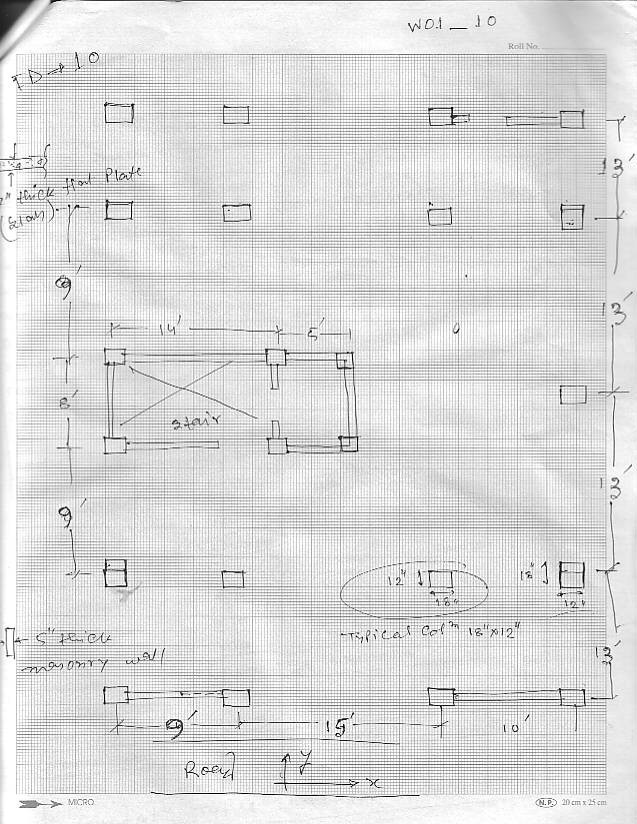 W01_10
Roll No.
ID→10
13'
thick flat Plate
9'
13'
14'
5'
8'
stair
13'
9'
12"
18"
18"
12"
Typical Colm 18"x12"
5" thick
masonry wall
13'
9'
15'
10'
Road
y
x
MICRO
N.P. 20 cm x 25 cm